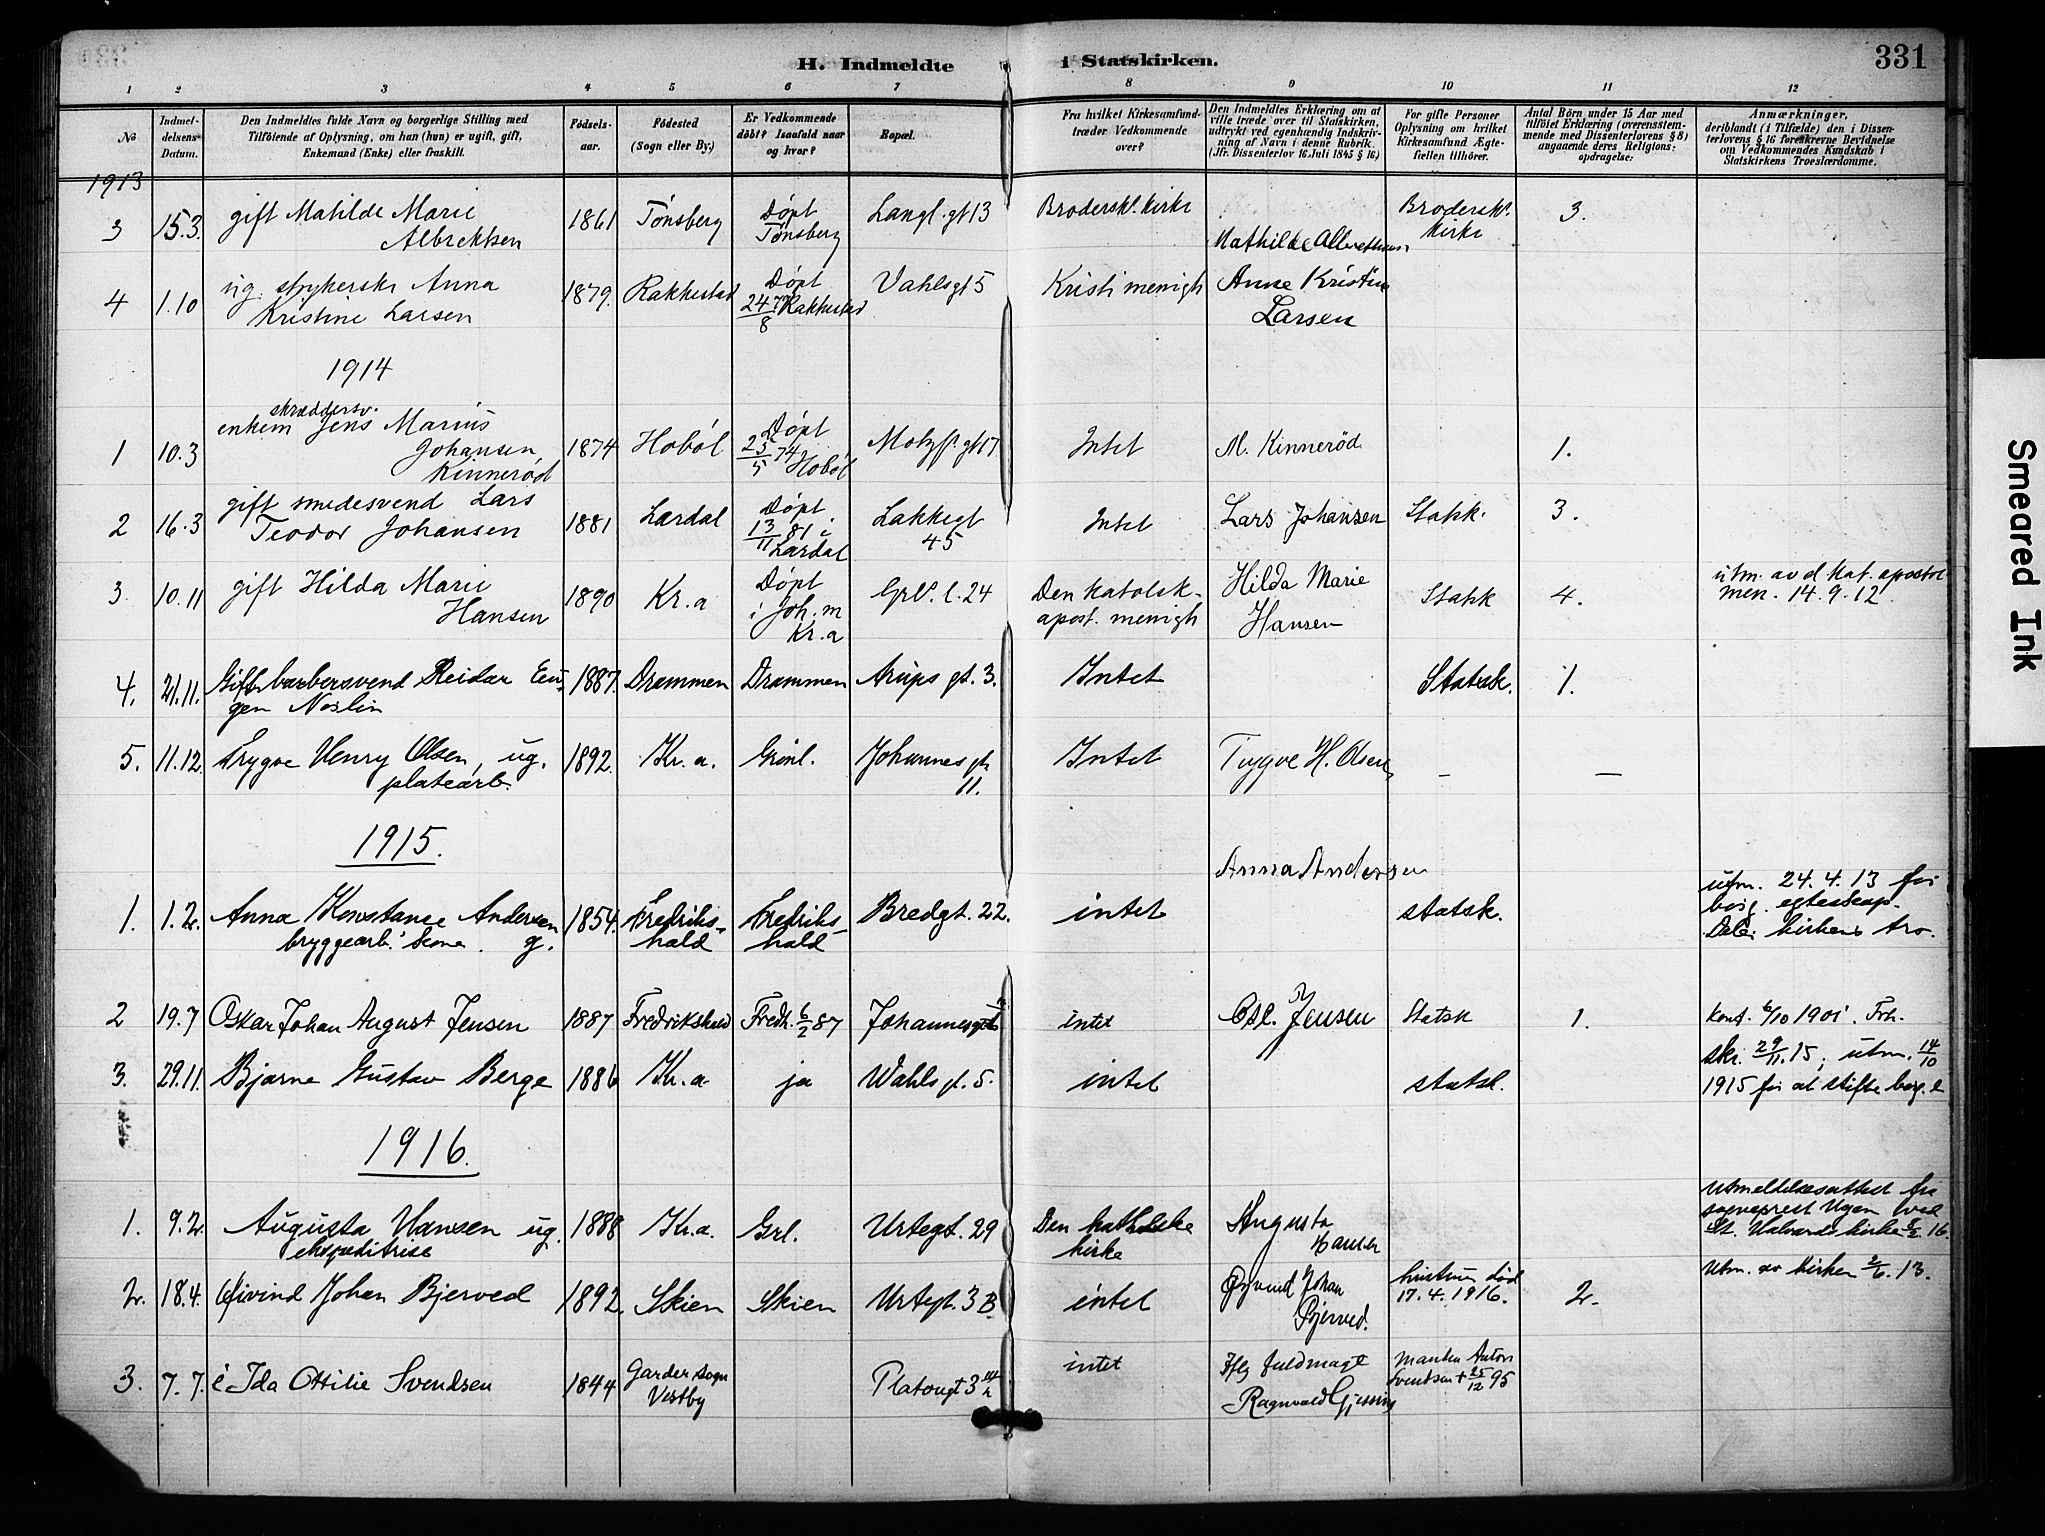 H. Indmeldte i Statskirken. 331
1 2 3 4 5 6 7 8 9 10 11 12
No
Indmel-
delsens
Datum.
Den Indmeldtes fulde Navn og borgerlige Stilling med
Tilföiende af Oplysning, om han (hun) er ugift, gift,
Enkemand (Enke) eller fraskilt.
Födsels-
aar.
Födested
(Sogn eller By.)
Er Vedkommende
döbt? Isaafald naar
og hvor?
Bopæl.
Fra hvilket Kirkesamfund
træder Vedkommende
over?
Den Indmeldtes Erklæring om at
ville træde over til Statskirken,
udtrykt ved egenhændig Indskriv-
ning af Navn i denne Rubrik.
(Jfr. Dissenterlov 16 Juli 1845 § 16)
For gifte Personer
Oplysning om hvilket
Kirkesamfund Ægte-
fællen tilhörer.
Antal Börn under 15 Aar med
tilföiet Erklæring (overensstem-
mende med Dissenterlovens § 8)
angaaende deres Religions-
opdragelse:
Anmærkninger,
deriblandt (i Tilfælde) den i Dissen-
terlovens § 16 foreskrevne Bevidnelse
om Vedkommendes Kundskab i
Statskirkens Troeslærdomme.
1913
3 15.3. gift Matilde Marie Albrektsen 1861 Tönsberg Döpt Tönsberg Langl. gt 13 Broderskl. kirke Mathilde Albrethsen Broderskl. kirke 3.
4 1.10 ug. strykerske Anna Kristine Larsen 1879. Rakkestad Döpt 24/8 79 Rakkestad Vahlsgt 5 Kristi menigh Anne Kristine Larsen
1914
1 10.3 enkem skræddersv. Jens Marius Johansen Kinneröd 1874 Hoböl Döpt 25/5 74 Hoböl Motzf. gt 17 Intet M. Kinneröd 1.
2 16.3 gift smedesvend Lars Teodor Johansen 1881 Lardal Döpt 13/11 81 i Lardal Lakkegt 45 Intet Lars Johansen Statsk. 3.
3. 10.11 gift Hilda Marie Hansen 1890 Kr.a Döpt i Joh. m Kr.a Grl. l. 24 Den katolsk-apost. menigh Hilda Marie Hansen Statsk 4. utm. av d kat. apostol men. 14.9.12
4. 21.11. Gift barbersvend Reidar Eugen Noslin 1887. Drammen Drammen Arups gt. 3. Intet Statsk. 1.
5. 11.12. Trygve Henry Olsen, ug. platearb. 1892. Kr.a. Grönl. Johannes gt. 11. Intet Trygve H. Olsen – –
1915.
1. 1.2. Anna Konstance Andersen bryggearb. kone. g. 1854. Fredrikshald Fredrikshald Bredgt. 22. intet Anna Andersen statsk. utm. 24.4.13 for borg. egteskap. Del. kirkens tro.
2 19.7 Oskar Johan August Jensen 1887 Fredrikshald Fredh. 6/2 87 Johannesgt intet Osc. Jensen Statsk 1. konf. 6/10 1901. Frh.
3. 29.11. Bjarne Gustav Berge 1886 Kr.a. ja Wahls gt. 5. intet statsk. skr. 29/11.15; utm. 14/10 1915 for at stifte borg. e
1916.
1. 9.2. Augusta Hansen ug. ekspeditrise 1888 Kr.a. Grl. Urtegt. 29 Den katholske kirke Augusta Hansen Utmeldelsesattest fra sogneprest Ugen ved St. Halvards kirke 8/2.16.
2. 18.4. Öivind Johan Bjerved 1892. Skien Skien Urtegt. 3 B. intet Öyvind Johan Bjerved. hustrun död 17.4.1916. 2. Utm. av kirken 2/6.13.
3. 7.7. e Ida Otilie Svendsen 1844 Garder sogn Vestby Platougt 3 intet Iflg fuldmagt Ragnvald Gjessing manden Anton Svendsen † 25/12 95
Smeared Ink